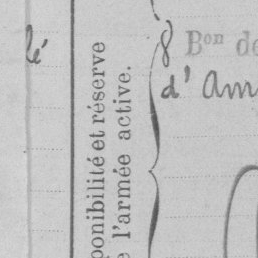 lé
ponibilité et réserve
e l'armée active.
8 Bon de
d'Arm